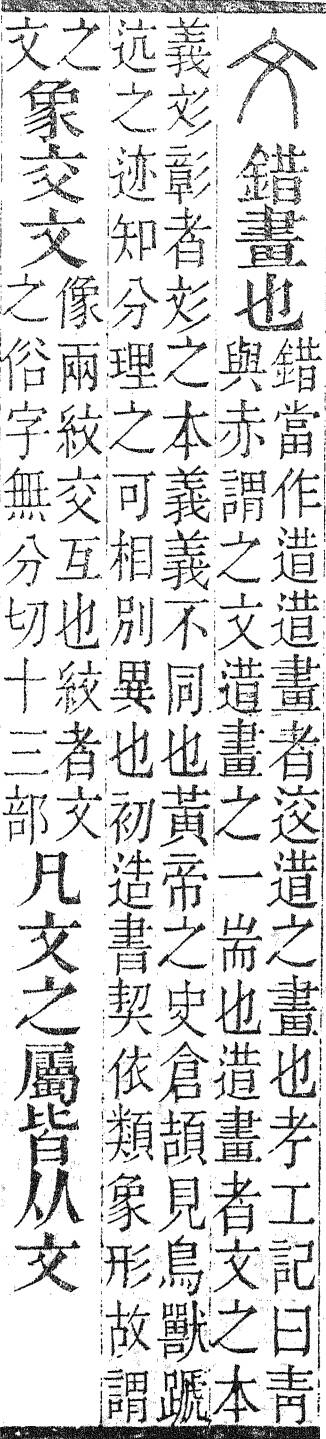 文
錯畫也
錯當作逪逪畫者䢒逪之畫也考工記曰青
與赤謂之文逪畫之一耑也逪畫者文之本
義彣彰者彣之本義義不同也黃帝之史倉頡見鳥獸蹏
迒之迹知分理之可相別異也初造書契依類象形故謂
之
文
象交文
像兩紋交互也紋者文
之俗字無分切十三部
凡文之屬皆从文